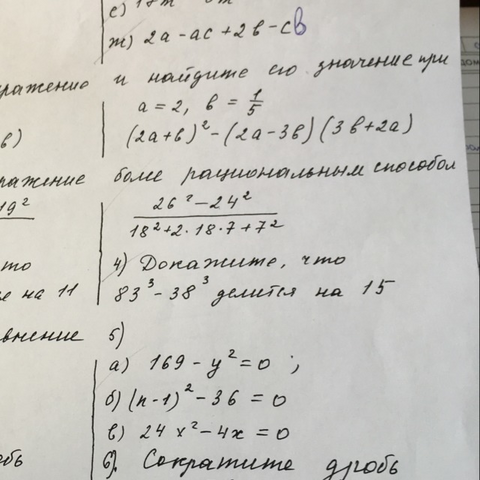 ж) 2а - ас + 2в - св
ражение и найдите его значение при
а = 2, в = 1/5
в) (2а+в)² - (2а-3в)(3в+2а)
ражение более рациональным способом
19² (26² - 24²)/(18² + 2·18·7 + 7²)
то 4) Докажите, что
е на 11 83³ - 38³ делится на 15
внение 5)
а) 169 - y² = 0 ;
б) (n-1)² - 36 = 0
в) 24x² - 4x = 0
бь 6). Сократите дробь